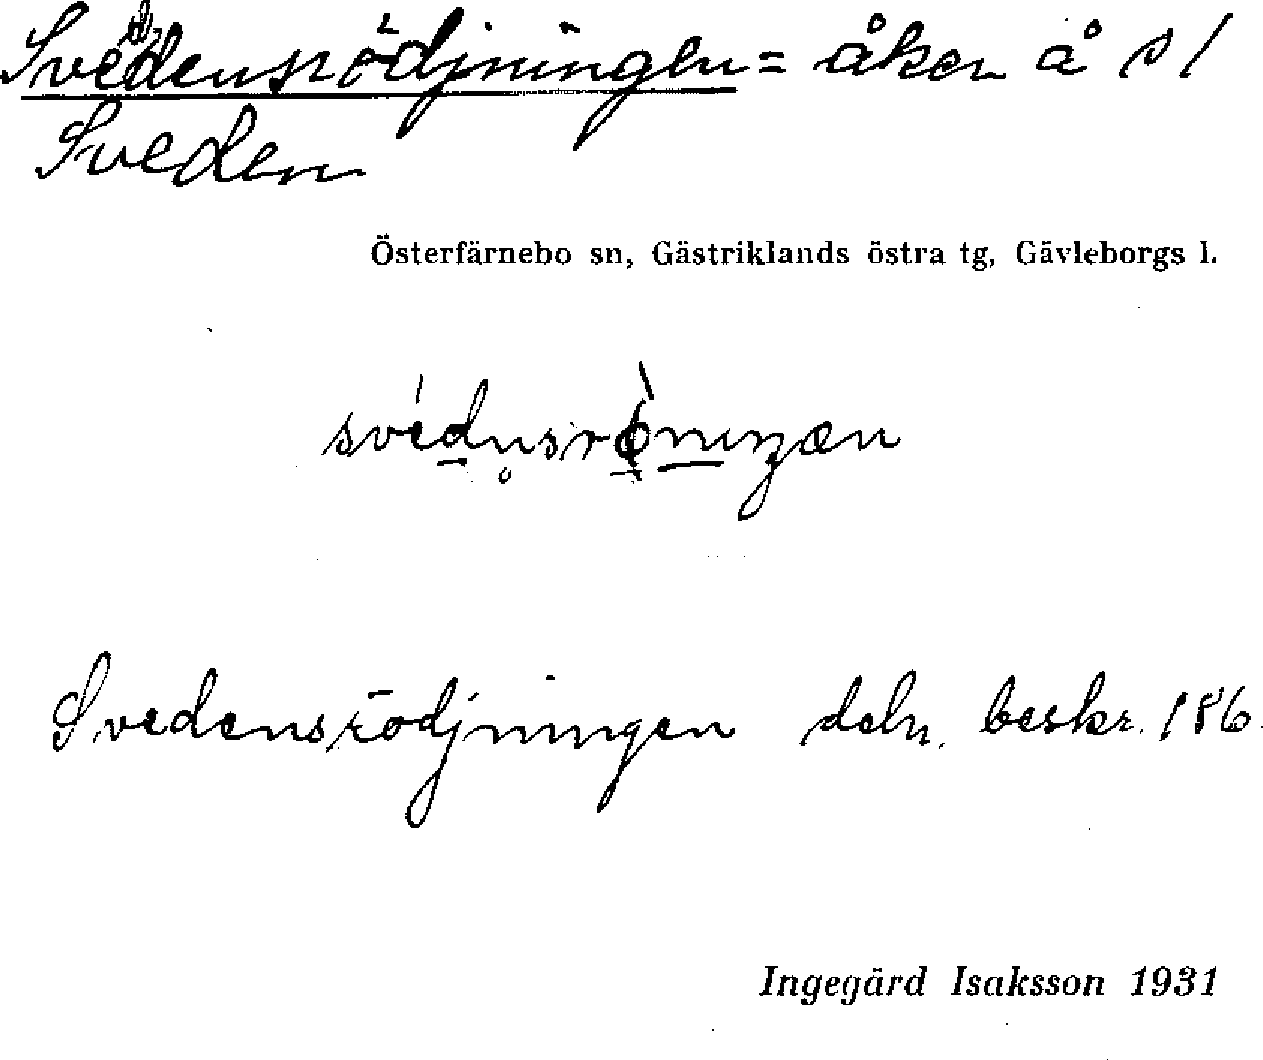 Svedensrödjningen = åker å s/
Sveden
Österfärnebo sn, Gästriklands östra tg, Gävleborgs l.
Svedensrödjningen deln. beskr. 186.
Ingegärd Isaksson 1931